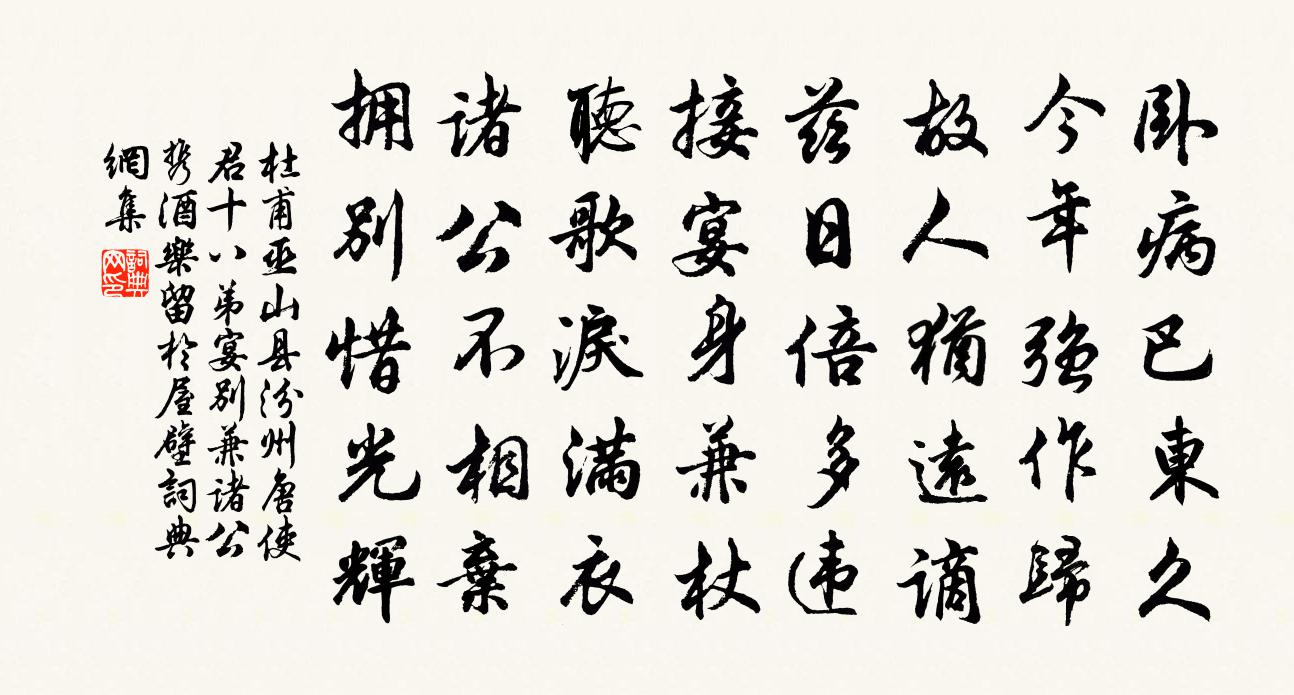 卧病巴東久
今年强作歸
故人猶遠謫
兹日倍多违
接宴身兼杖
聽歌淚满衣
诸公不相棄
拥别惜光輝
杜甫巫山县汾州唐使
君十八弟宴别兼诸公
携酒樂留於屋壁詞典
網集
詞典
网印